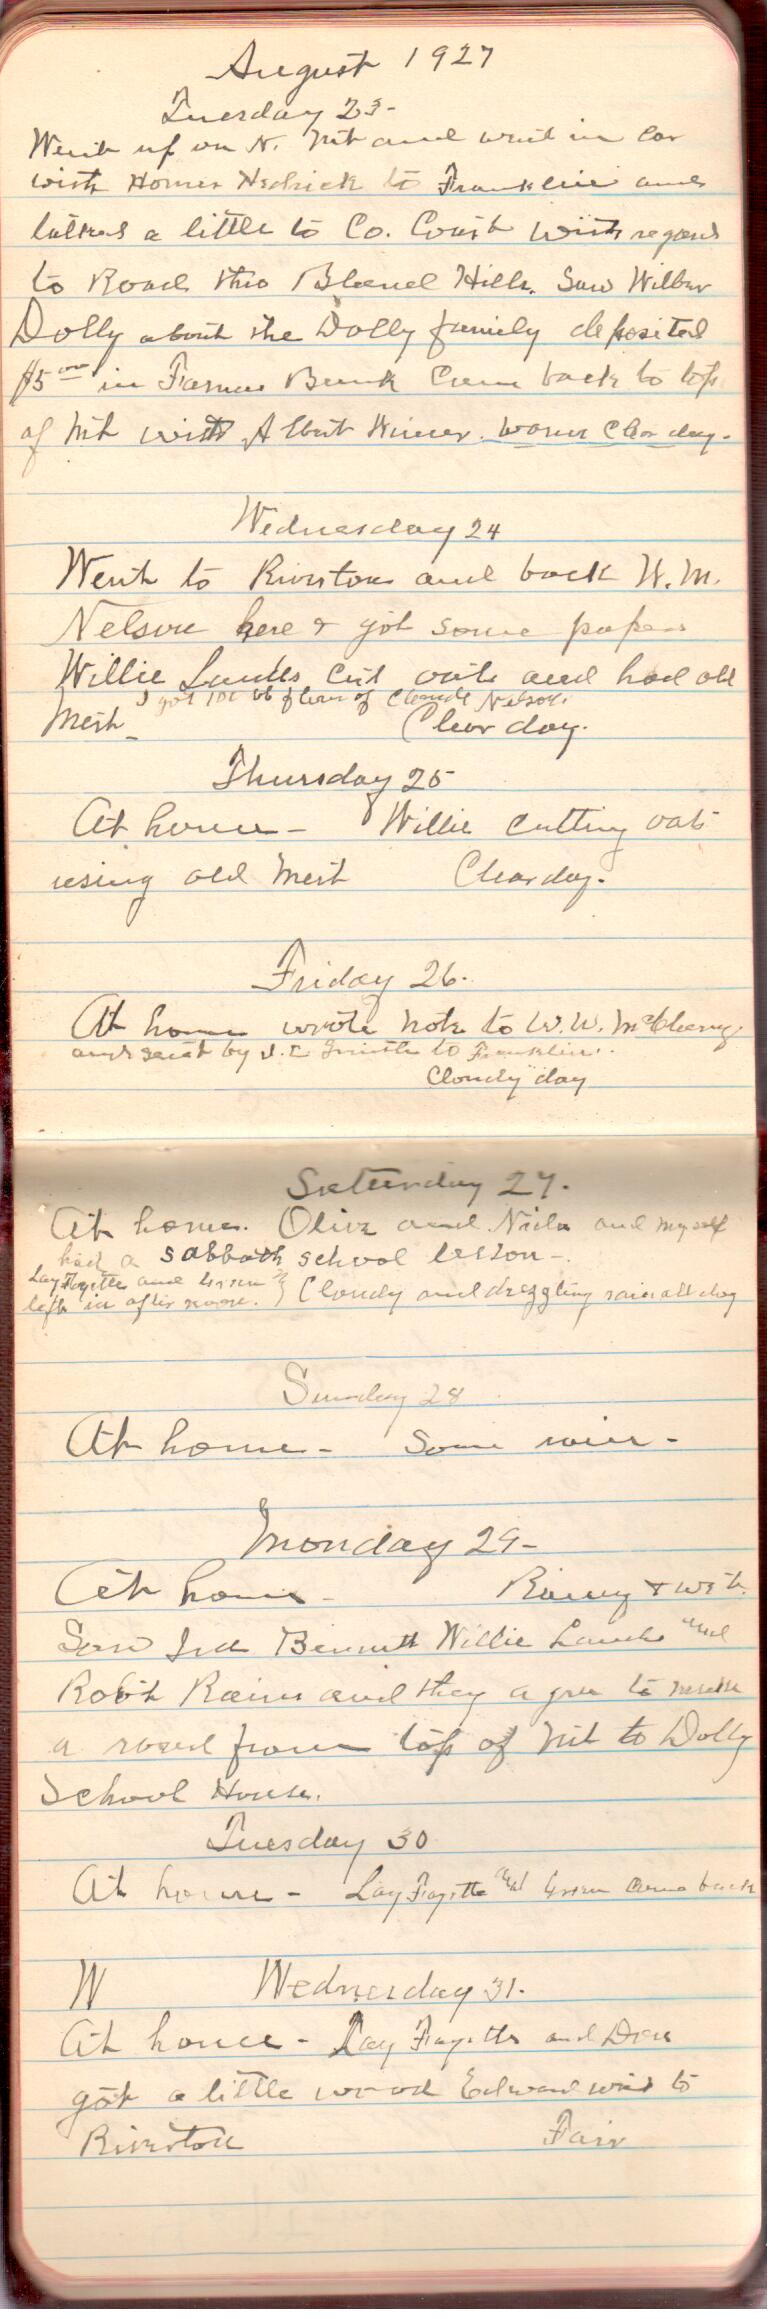 August 1927
Tuesday 23-
Went up on N. Mt and went in car
with Homer Hedrick to Franklin and
talked a little to Co. Court with regard
to Road thro Bland Hills. Saw Wilber
Dolly about the Dolly family deposited
$5 00 in Farmers Bank Came back to top
of Mt with Albert Kimer. warm Clear day-
Wednesday 24
Went to Riverton and back W. M.
Nelson here & got some papers
Willie Lambs cut oats and had old
I got 100 lb flour of Claude Nelson.
Mert_ Clear day.
Thursday 25
At home - Willie cutting oats
using old Mert Clear day.
Friday 26.
At home wrote note to W. W. McClung
and sent by J. E Smith to Franklin.
Cloudy day
Saturday 27.
At home. Olive and and myself
had a sabbath school lesson -
LayFayette and
left in after noon. } Cloudy and drizzling rain all day
Sunday 28
At home - Some rain -
Monday 29-
At home - Rainy & wet.
Saw Ira Bennett Willie Lambs and
Robt Raines and they agree to make
a road from top of Mt to Dolly
School House.
Tuesday 30
At home - LayFayette and came back
W Wednesday 31.
At home - LayFayette and Don
got a little wood Edward went to
Riverton Fair